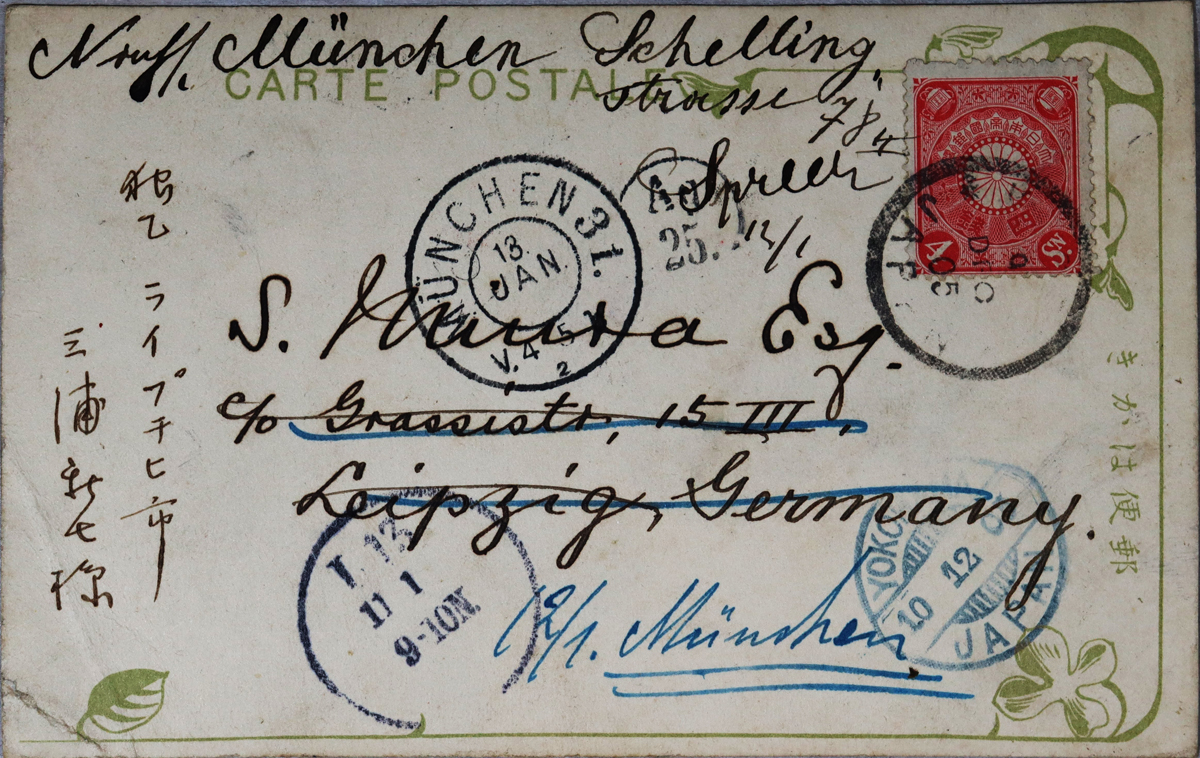 München Schelling
strasse
CARTE POSTALE
78/II
12/1
S. Miura Esq.
c/o Grassistr. 15 III,
Leipzig, Germany.
12/1. München
独乙 ライプチヒ市
三浦新七様
きかは便郵
MÜNCHEN 31.
13
JAN
V. 4-5
2
25.
4 Sn.
JAPAN
05
YOKOHAMA
10 12 0
JAPAN
11 1
9-10N.